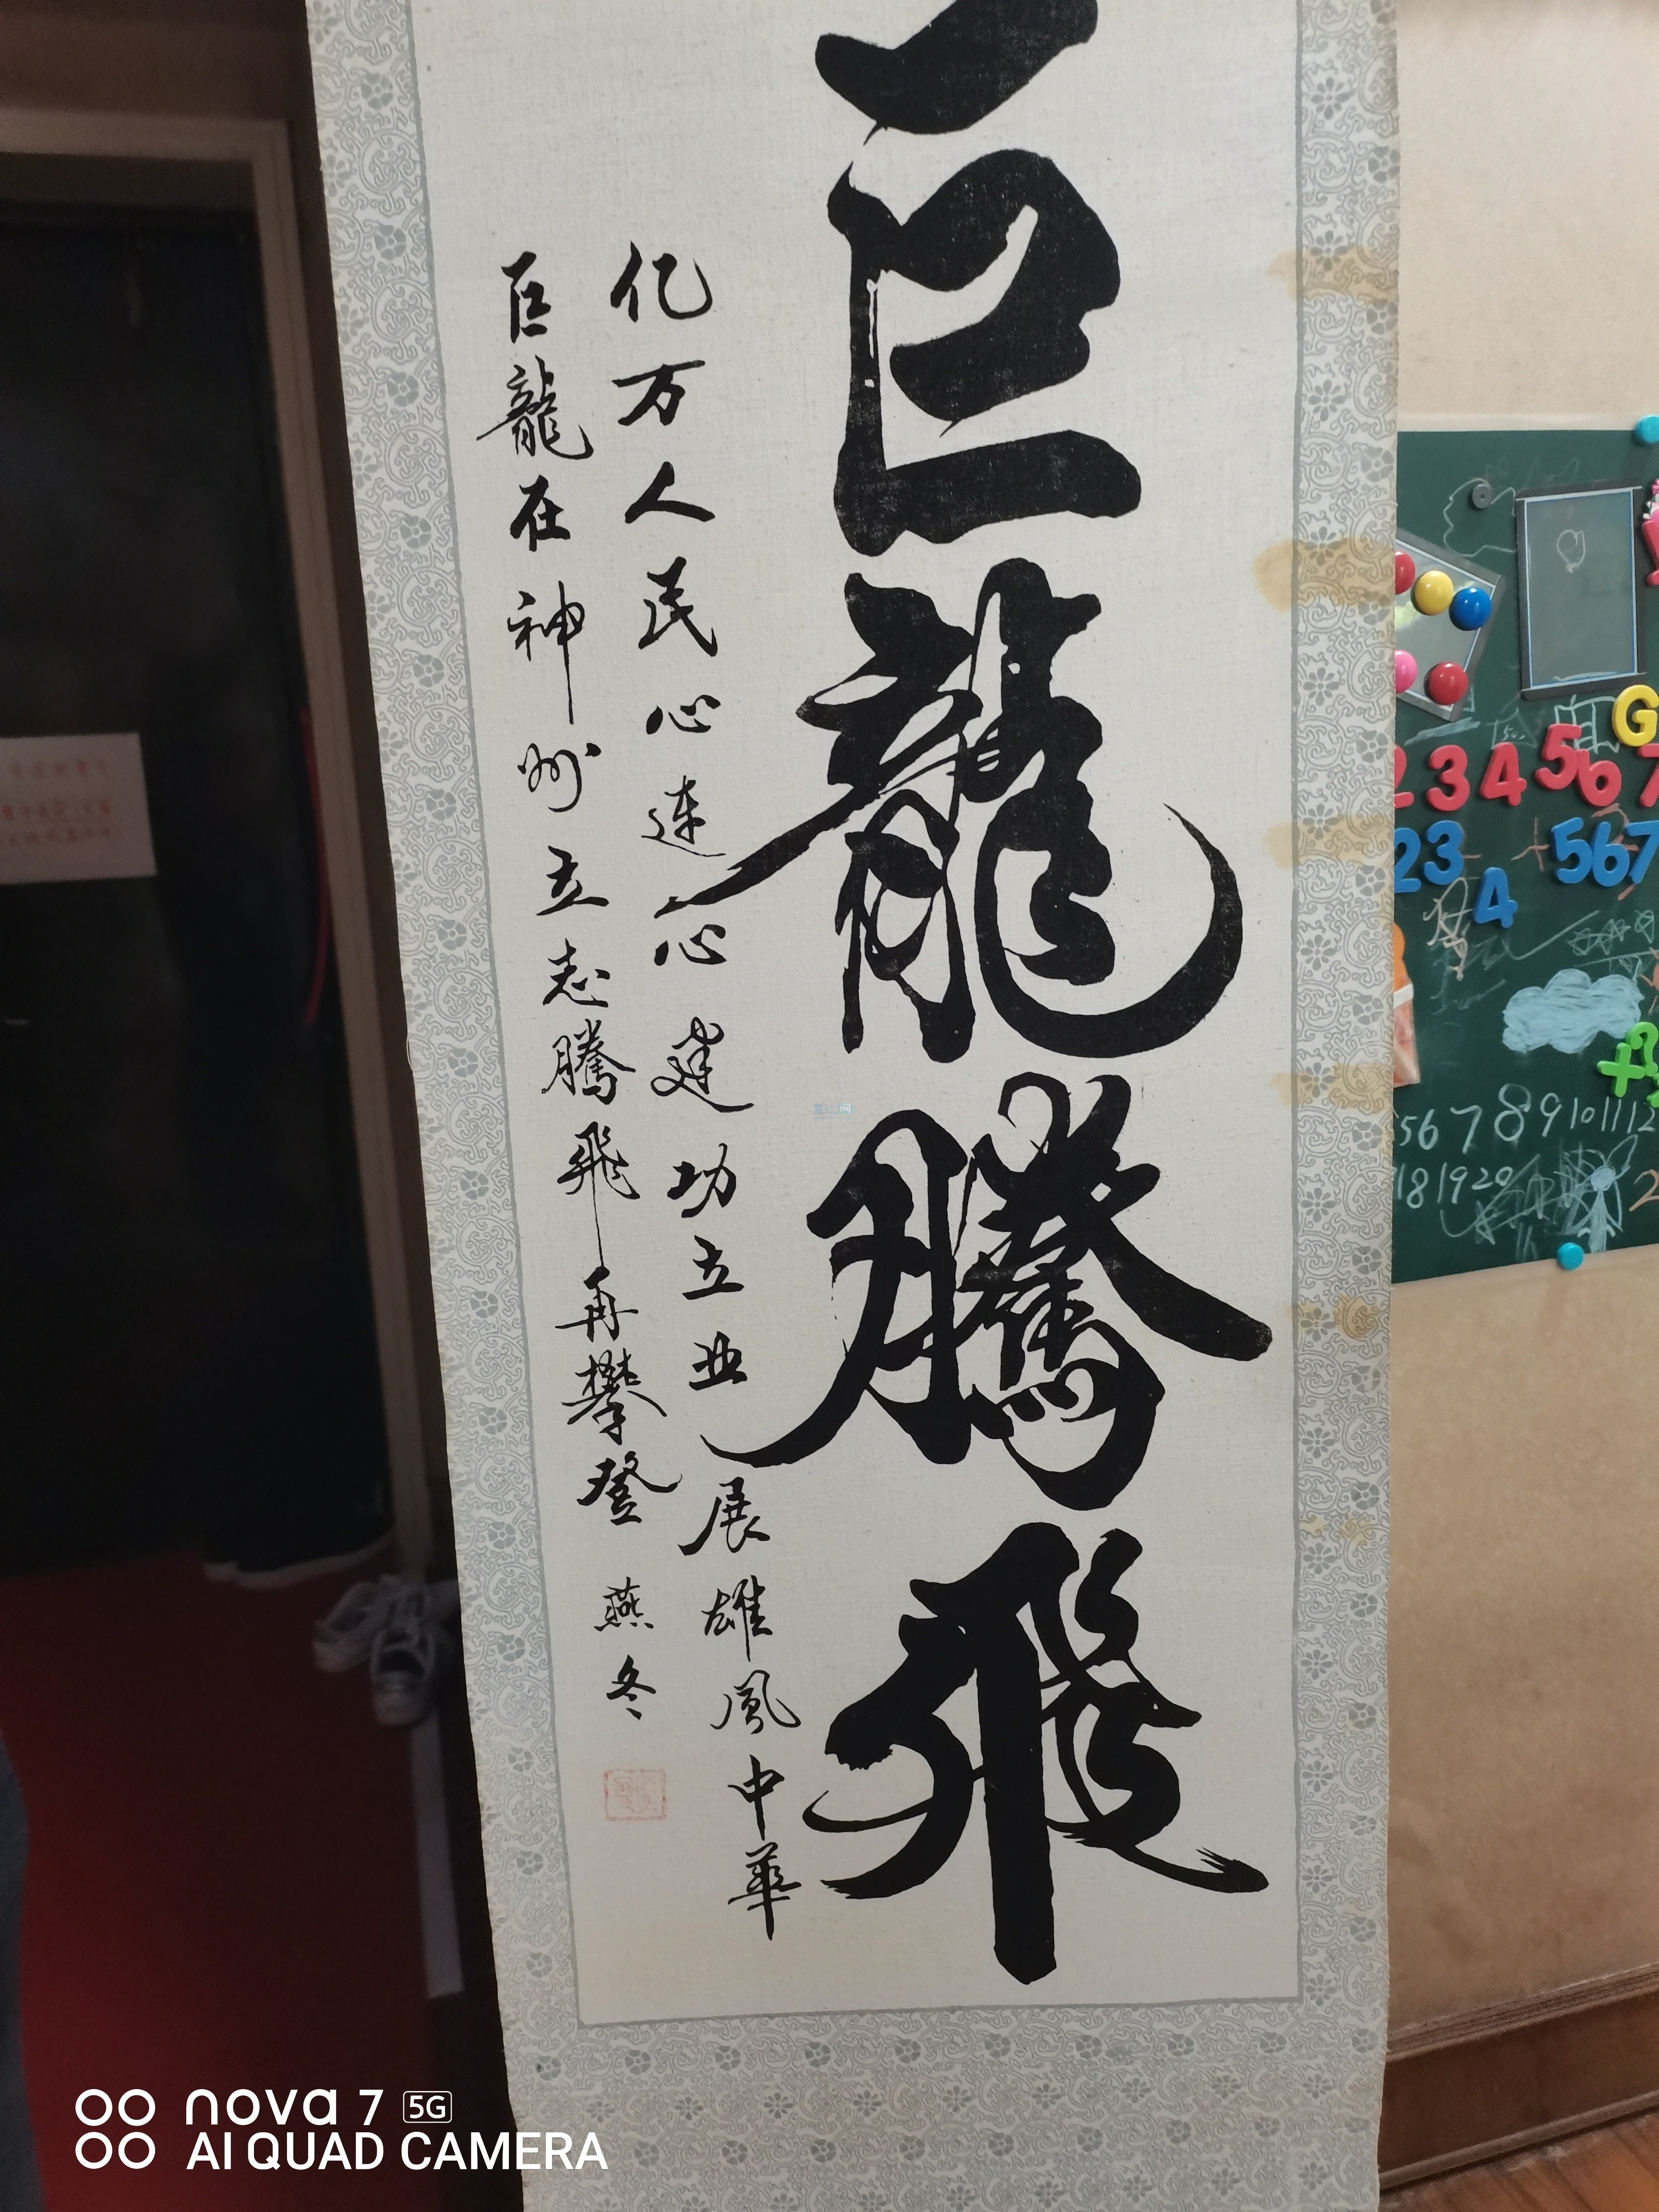 巨龍騰飛
亿万人民心连心建功立业展雄風中華
巨龍在神州立志騰飛再攀登
燕冬
G
2 3 4 5 6 7
2 3 4 + 5 6 7
5 6 7 8 9 10 11 12
18 19 20
nova 7 5G
AI QUAD CAMERA